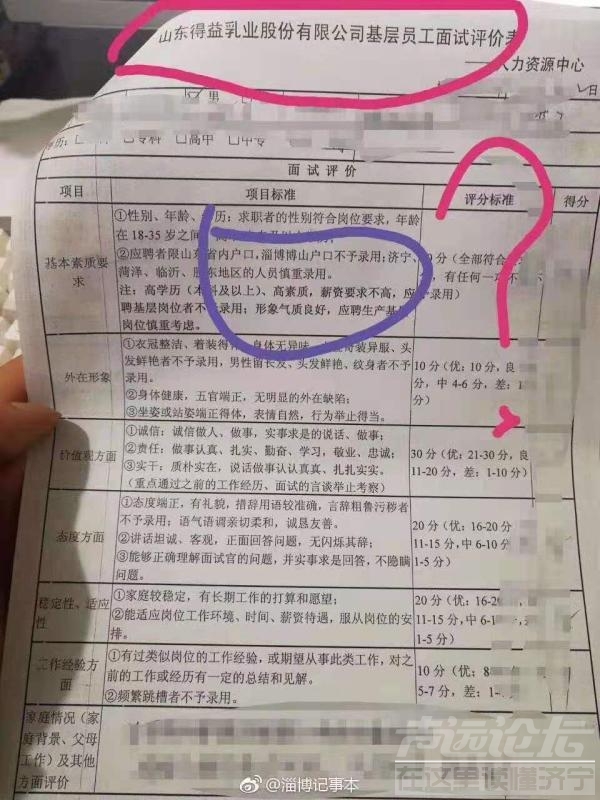 山东得益乳业股份有限公司基层员工面试评价表
人力资源中心
日
男
历：
专科 高中 中专
面试评价
项目 项目标准 评分标准 得分
基本素质要求
①性别、年龄、 历：求职者的性别符合岗位要求，年龄
在18-35岁之间
②应聘者限山东省内户口，淄博博山户口不予录用；济宁、
菏泽、临沂、胶东地区的人员慎重录用。
注：高学历（本科及以上）、高素质，薪资要求不高，应
聘基层岗位者不予录用；形象气质良好，应聘生产基层
岗位慎重考虑。
分（全部符合
，有任何一项不
录用）
外在形象
①衣冠整洁、着装得体，身体无异味，奇装异服、头
发鲜艳者不予录用，男性留长发、头发鲜艳、纹身者不予
录用。
②身体健康，五官端正，无明显的外在缺陷；
③坐姿或站姿端正得体，表情自然，行为举止得当。
10分（优：10分，良
分，中4-6分，差：1
分）
价值观方面
①诚信：诚信做人、做事，实事求是的说话、做事；
②责任：做事认真、扎实、勤奋、学习，敬业、忠诚；
③实干：质朴实在，说话做事认认真真、扎扎实实。
（重点通过之前的工作经历、面试的言谈举止考察）
30分（优：21-30分，良
11-20分，差：1-10分）
态度方面
①态度端正，有礼貌，措辞用语较准确，言辞粗鲁污秽者
不予录用；语气语调亲切柔和，诚恳友善。
②讲话坦诚、客观，正面回答问题，无闪烁其辞；
③能够正确理解面试官的问题，并实事求是回答，不隐瞒
问题。
20分（优：16-20分
11-15分，中6-10分
1-5分）
稳定性、适应性
①家庭较稳定，有长期工作的打算和愿望；
②能适应岗位工作环境、时间、薪资待遇，服从岗位的安
排。
20分（优：16-20
11-15分，中6-1
1-5分）
工作经验方面
①有过类似岗位的工作经验，或期望从事此类工作，对之
前的工作或经历有一定的总结和见解。
②频繁跳槽者不予录用。
10分（优：8
5-7分，差：1-
家庭情况（家
庭背景、父母
工作）及其他
方面评价
@淄博记事本
在这里读懂济宁